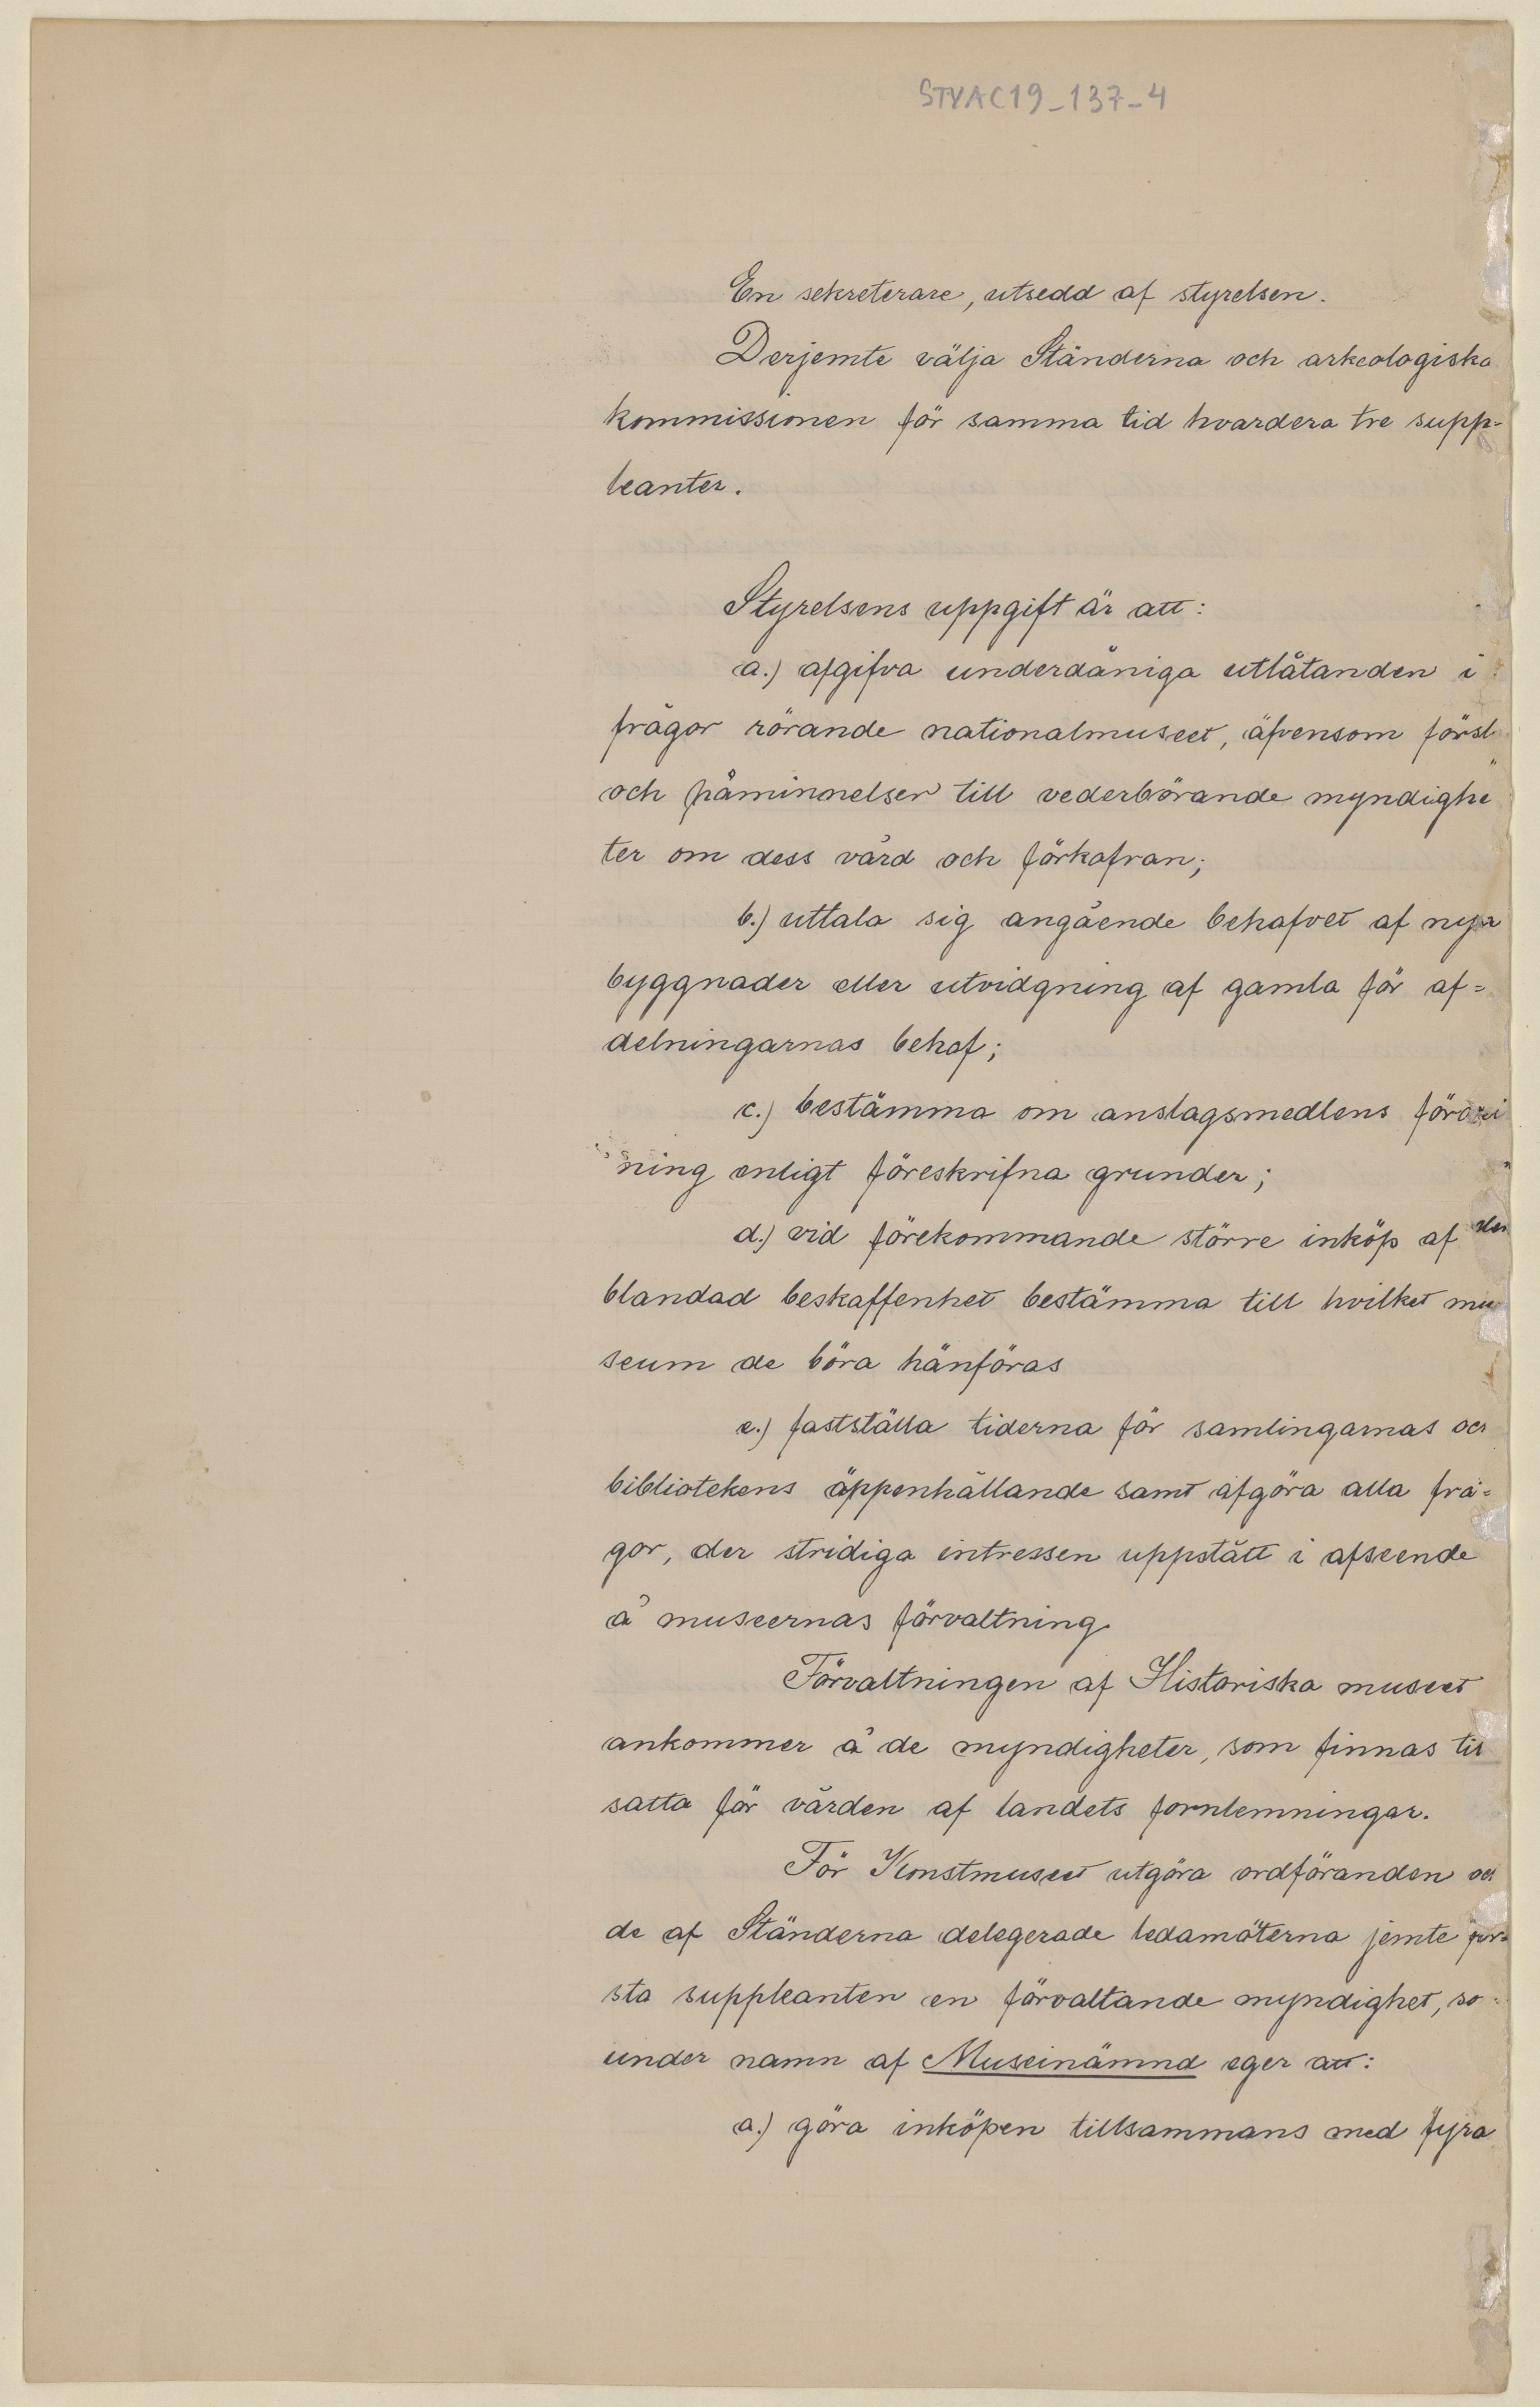 STYAC19_137_4
En sekreterare, utsedd af styrelsen.
Derjemte välja Ständerna och arkeologiska
kommissionen för samma tid hvardera tre supp-
leanter.
Styrelsens uppgift är att:
a.) afgifva underdåniga utlåtanden i
frågor rörande nationalmuseet, äfvensom försl
och påminnelser till vederbörande myndighe
ter om dess vård och förkofran;
b.) uttala sig angående behofvet af nya
byggnader eller utvidgning af gamla för af=
delningarnas behof;
c.) bestämma om anslagsmedlens
ning enligt föreskrifna grunder;
d.) vid förekommande större inköp af
blandad beskaffenhet bestämma till hvilket mu
seum de böra hänföras
e.) fastställa tiderna för samlingarnas och
bibliotekens öppenhållande samt afgöra alla frå=
gor, der stridiga intressen uppstått i afseende
å museernas förvaltning.
Förvaltningen af Historiska museet
ankommer å de myndigheter, som finnas till
satta för vården af landets fornlemningar.
För Konstmuseet utgöra ordföranden och
de af Ständerna delegerade ledamöterna jemte för=
sta suppleanten en förvaltande myndighet, so
under namn af Museinämnd eger att:
a.) göra inköpen tillsammans med fyra